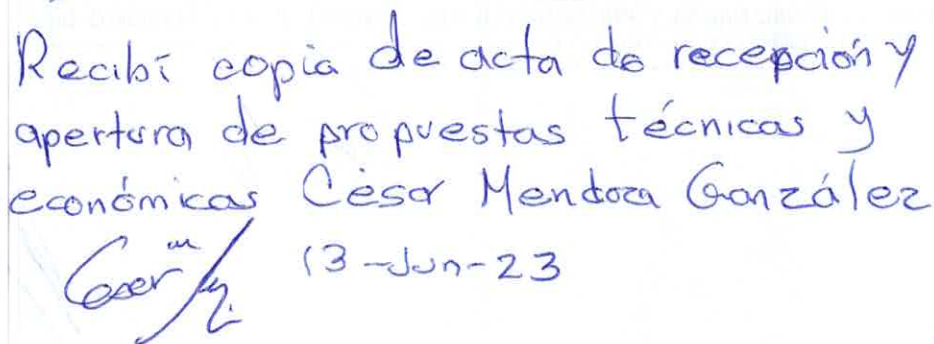 Recibí copia de acta de recepción y
apertura de propuestas técnicas y
económicas César Mendoza González
13-Jun-23